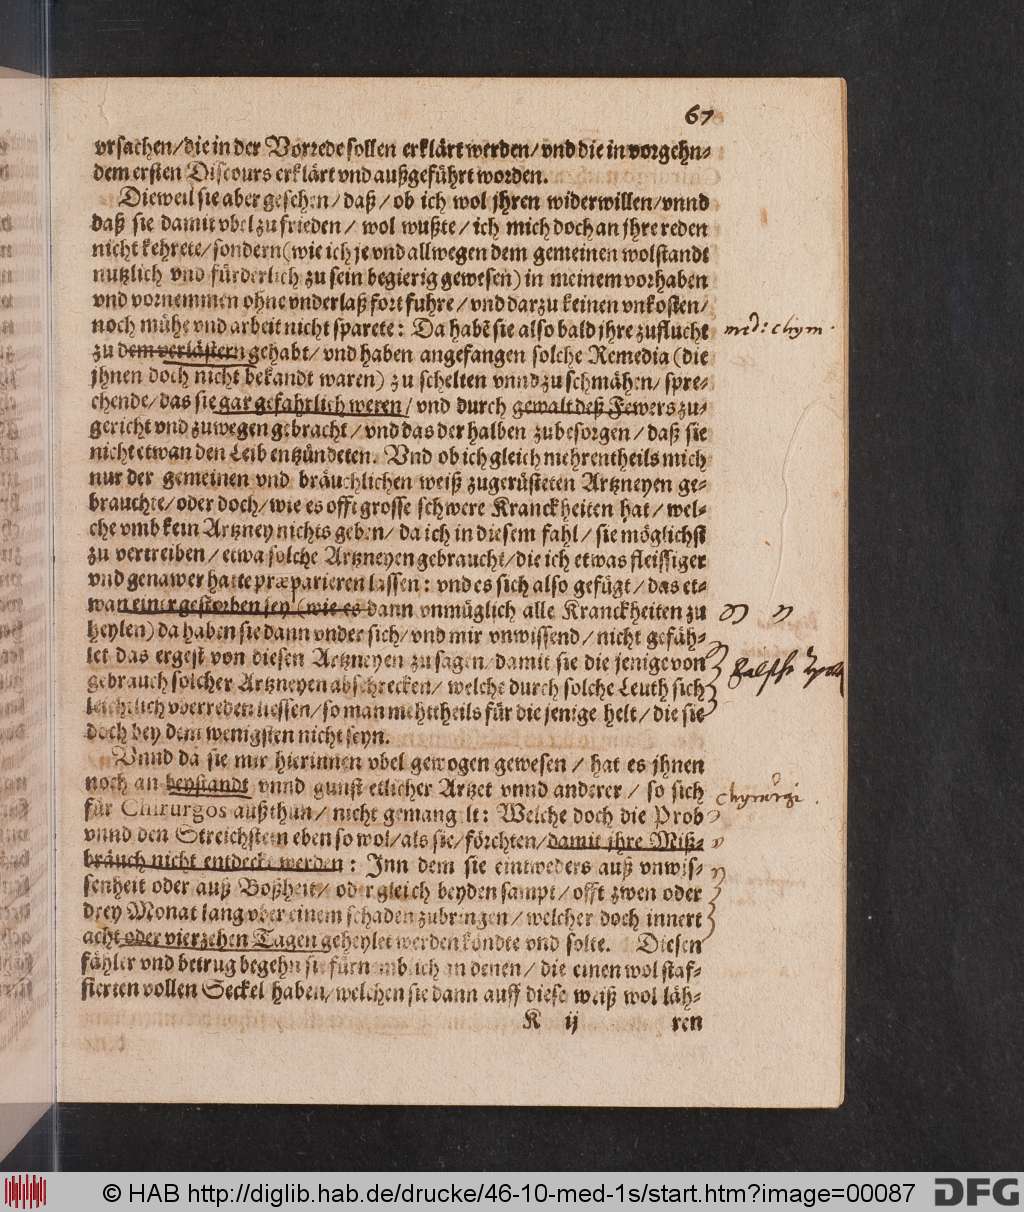 67
vrsachen/die in der Vorrede sollen erklärt werden/vnd die in vorgehn-
dem ersten Discours erklärt vnd außgeführt worden.
Dieweil sie aber gesehen/daß/ob ich wol jhren widerwillen/vnnd
daß sie damit vbel zu frieden/wol wußte/ich mich doch an jhre reden
nicht kehrete/sondern(wie ich je vnd allwegen dem gemeinen wolstandt
nutzlich vnd fürderlich zu sein begierig gewesen) in meinem vorhaben
vnd vornemmen ohne vnderlaß fort fuhre/vnd darzu keinen vnkosten/
noch mühe vnd arbeit nicht sparete: Da habē sie also bald jhre zuflucht med: chym.
zu dem verlästern gehabt/vnd haben angefangen solche Remedia (die
jhnen doch nicht bekandt waren) zu schelten vnnd zu schmähen/spre-
chende/das sie gar gefährlich weren/vnd durch gewalt deß Fewers zu-
gericht vnd zuwegen gebracht/vnd das derhalben zubesorgen/daß sie
nicht etwan den Leib entzündeten. Vnd ob ich gleich mehrentheils mich
nur der gemeinen vnd bräuchlichen weiß zugerüsteten Artzneyen ge-
brauchte/oder doch/wie es offt grosse schwere Kranckheiten hat/wel-
che vmb kein Artzney nichts geben/da ich in diesem fahl/sie möglichst
zu vertreiben/etwa solche Artzneyen gebraucht/die ich etwas fleissiger
vnd genawer hatte præparieren lassen: vnd es sich also gefügt/das et-
wan einer gestorben sey (wie es dann vnmüglich alle Kranckheiten zu
heylen) da haben sie dann vnder sich/vnd mir vnwissend/nicht gefäh-
let das ergest von diesen Artzneyen zusagen/damit sie die jenige von
gebrauch solcher Artzneyen abschrecken/welche durch solche Leuth sich
leichtlich vberreden liessen/so man mehrtheils für die jenige helt/die sie
doch bey dem wenigsten nicht seyn.
Vnnd da sie mir hierinnen vbel gewogen gewesen/hat es jhnen
noch an beystandt vnnd gunst etlicher Artzet vnnd anderer/so sich chyrurgi.
für Chirurgos außthun/nicht gemang lt: Welche doch die Prob
vnnd den Streichstein eben so wol/als sie/förchten/damit jhre Miß-
bräuch nicht entdeckt werden: Inn dem sie eintweders auß vnwis-
senheit oder auß Boßheit/oder gleich beyden sampt/offt zwen oder
drey Monat lang vber einem schaden zubringen/welcher doch innert
acht oder vierzehen Tagen geheylet werden köndte vnd solte. Diesen
fähler vnd betrug begehn sie fürnemblich an denen/die einen wol staf-
fierten vollen Seckel haben/welchen sie dann auff diese weiß wol läh-
K ij ren
© HAB http://diglib.hab.de/drucke/46-10-med-1s/start.htm?image=00087 DFG